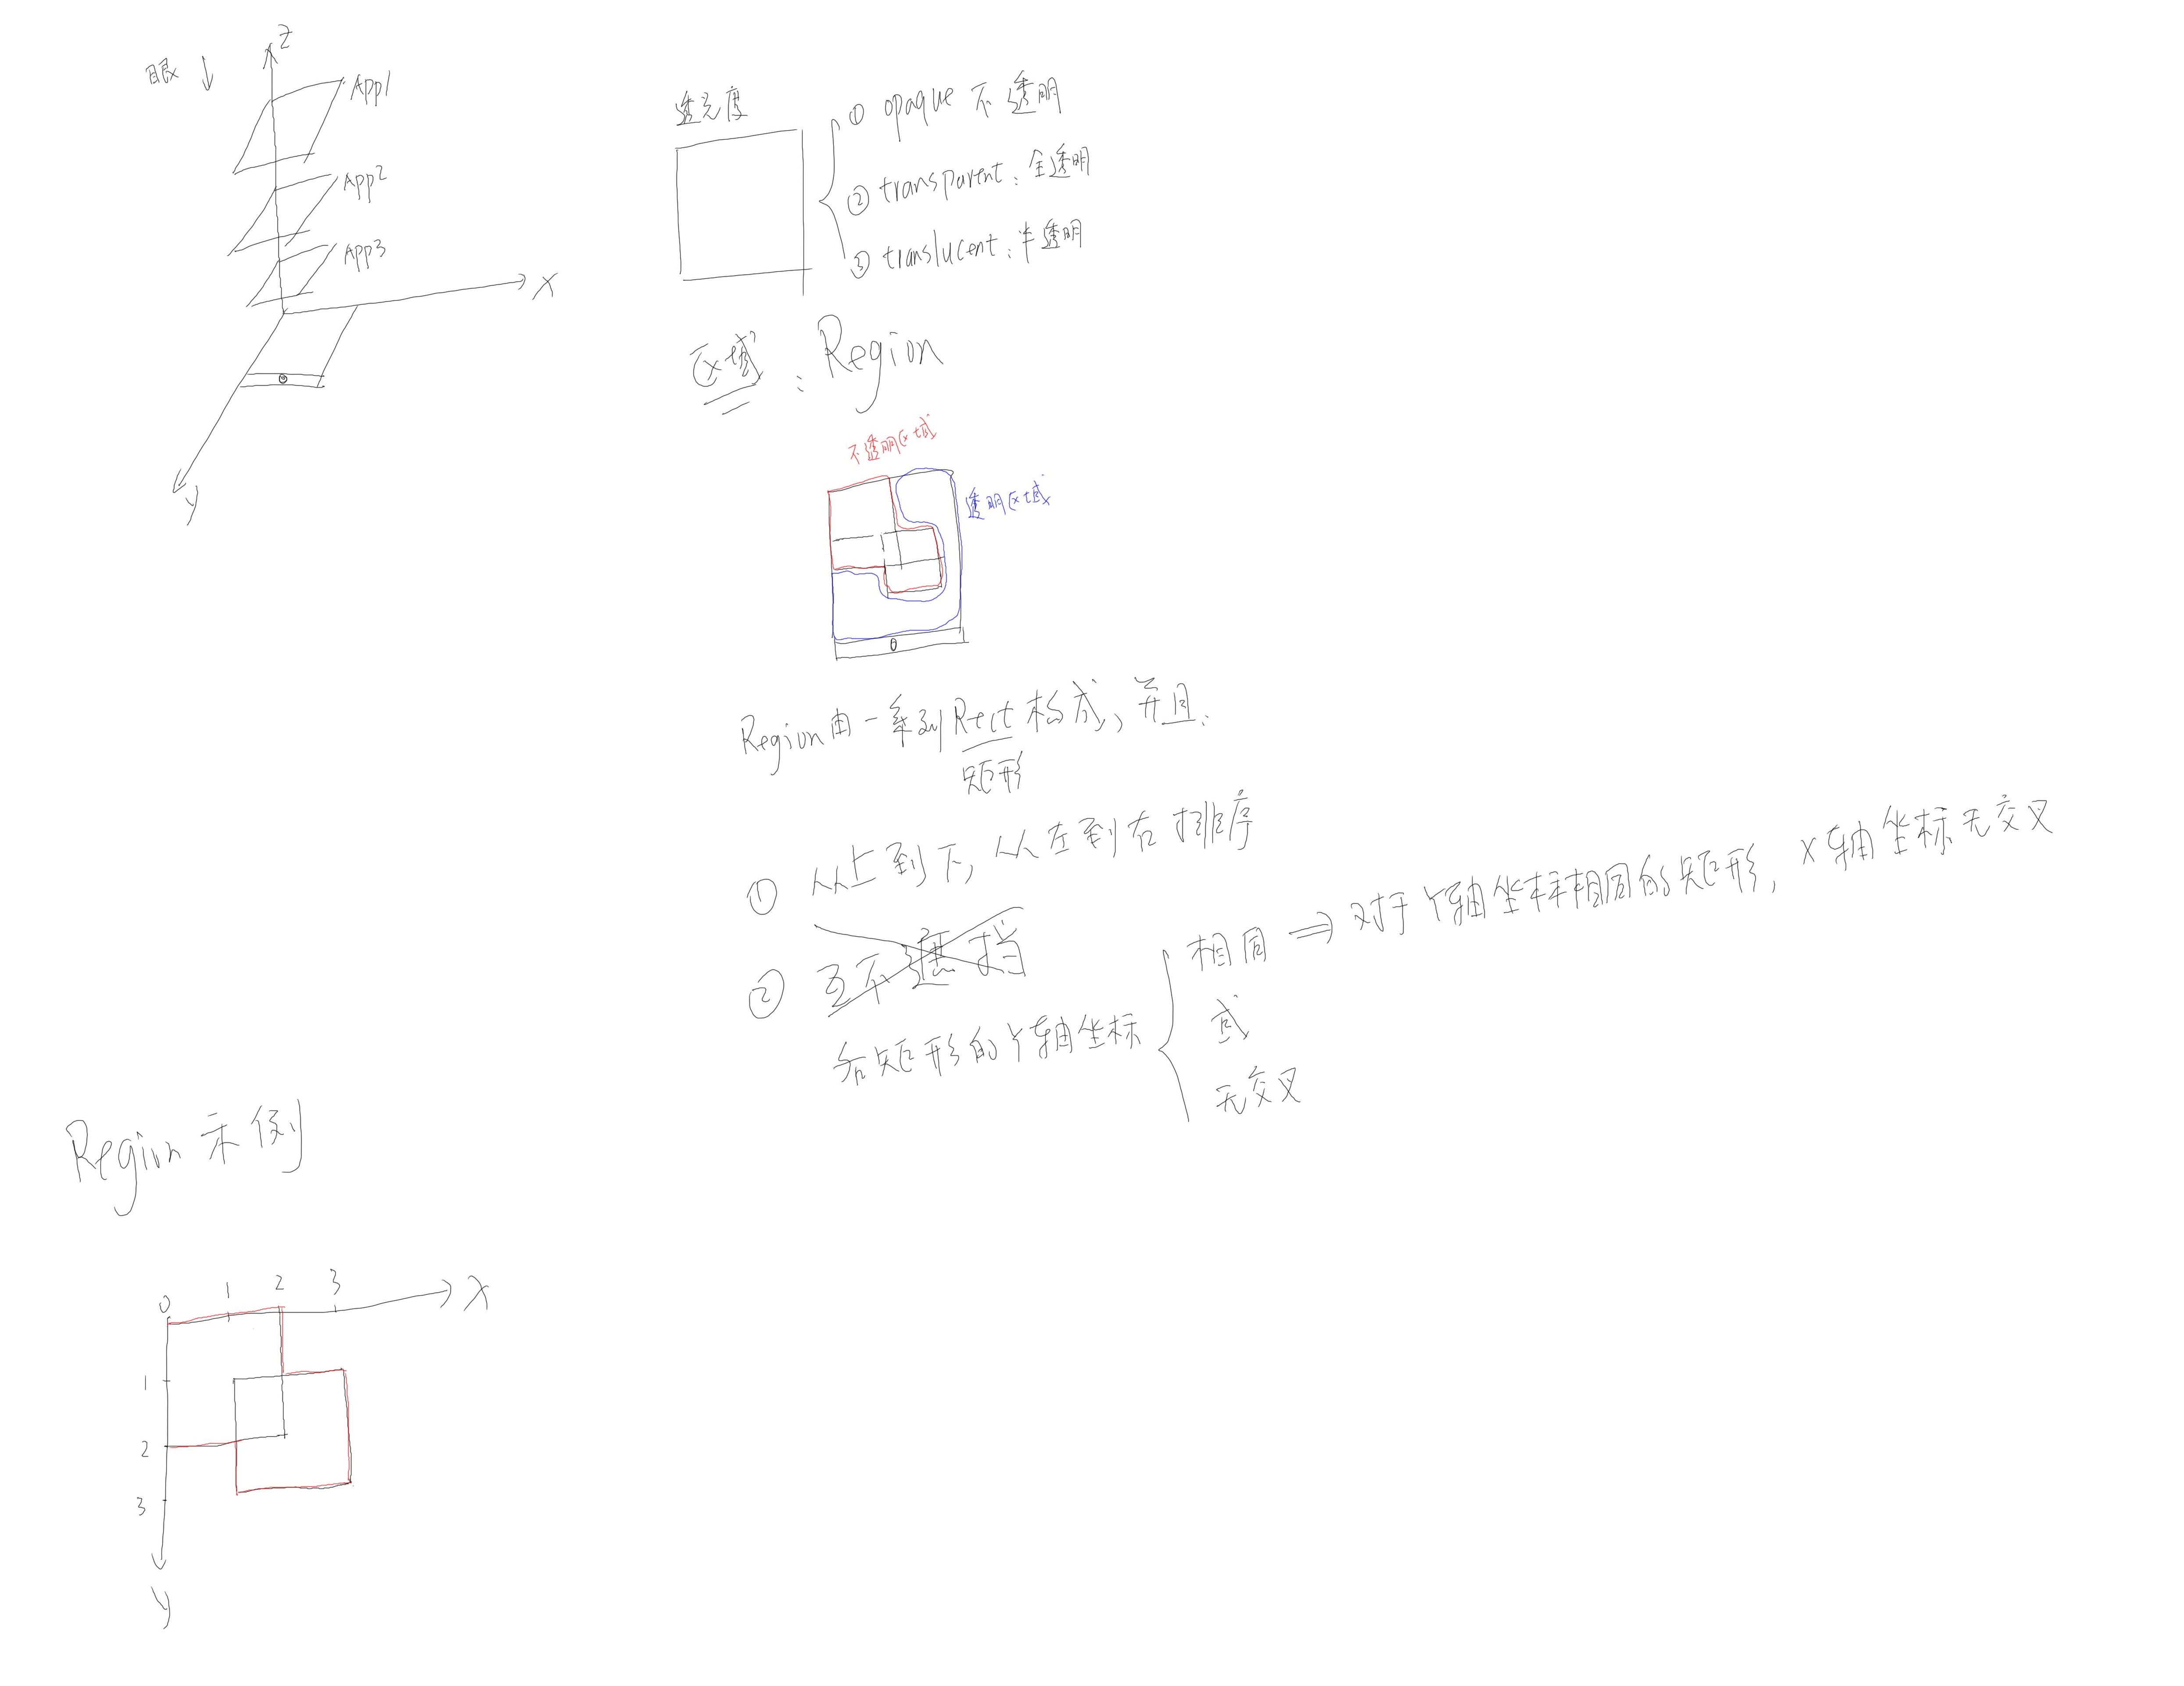 眼 ↓
Z
App1
App2
App3
X
y
透光度
① opaque 不透明
② transparent: 全透明
③ translucent: 半透明
区域: Region
不透明区域
透明区域
Region由一系列Rect构成, 并且:
矩形
① 从上到下, 从左到右排序
② 互不遮挡
各矩形的Y轴坐标
相同 ⇒ 对于Y轴坐标相同的矩形, X轴坐标无交叉
或
无交叉
Region 示例
0 1 2 3 X
1
2
3
y